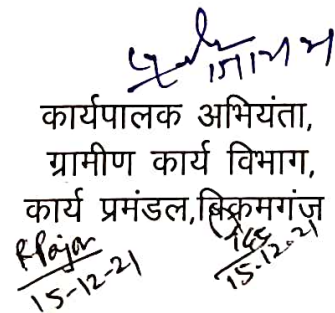 कार्यपालक अभियंता,
ग्रामीण कार्य विभाग,
कार्य प्रमंडल,बिक्रमगंज
15-12-21
15.12.21